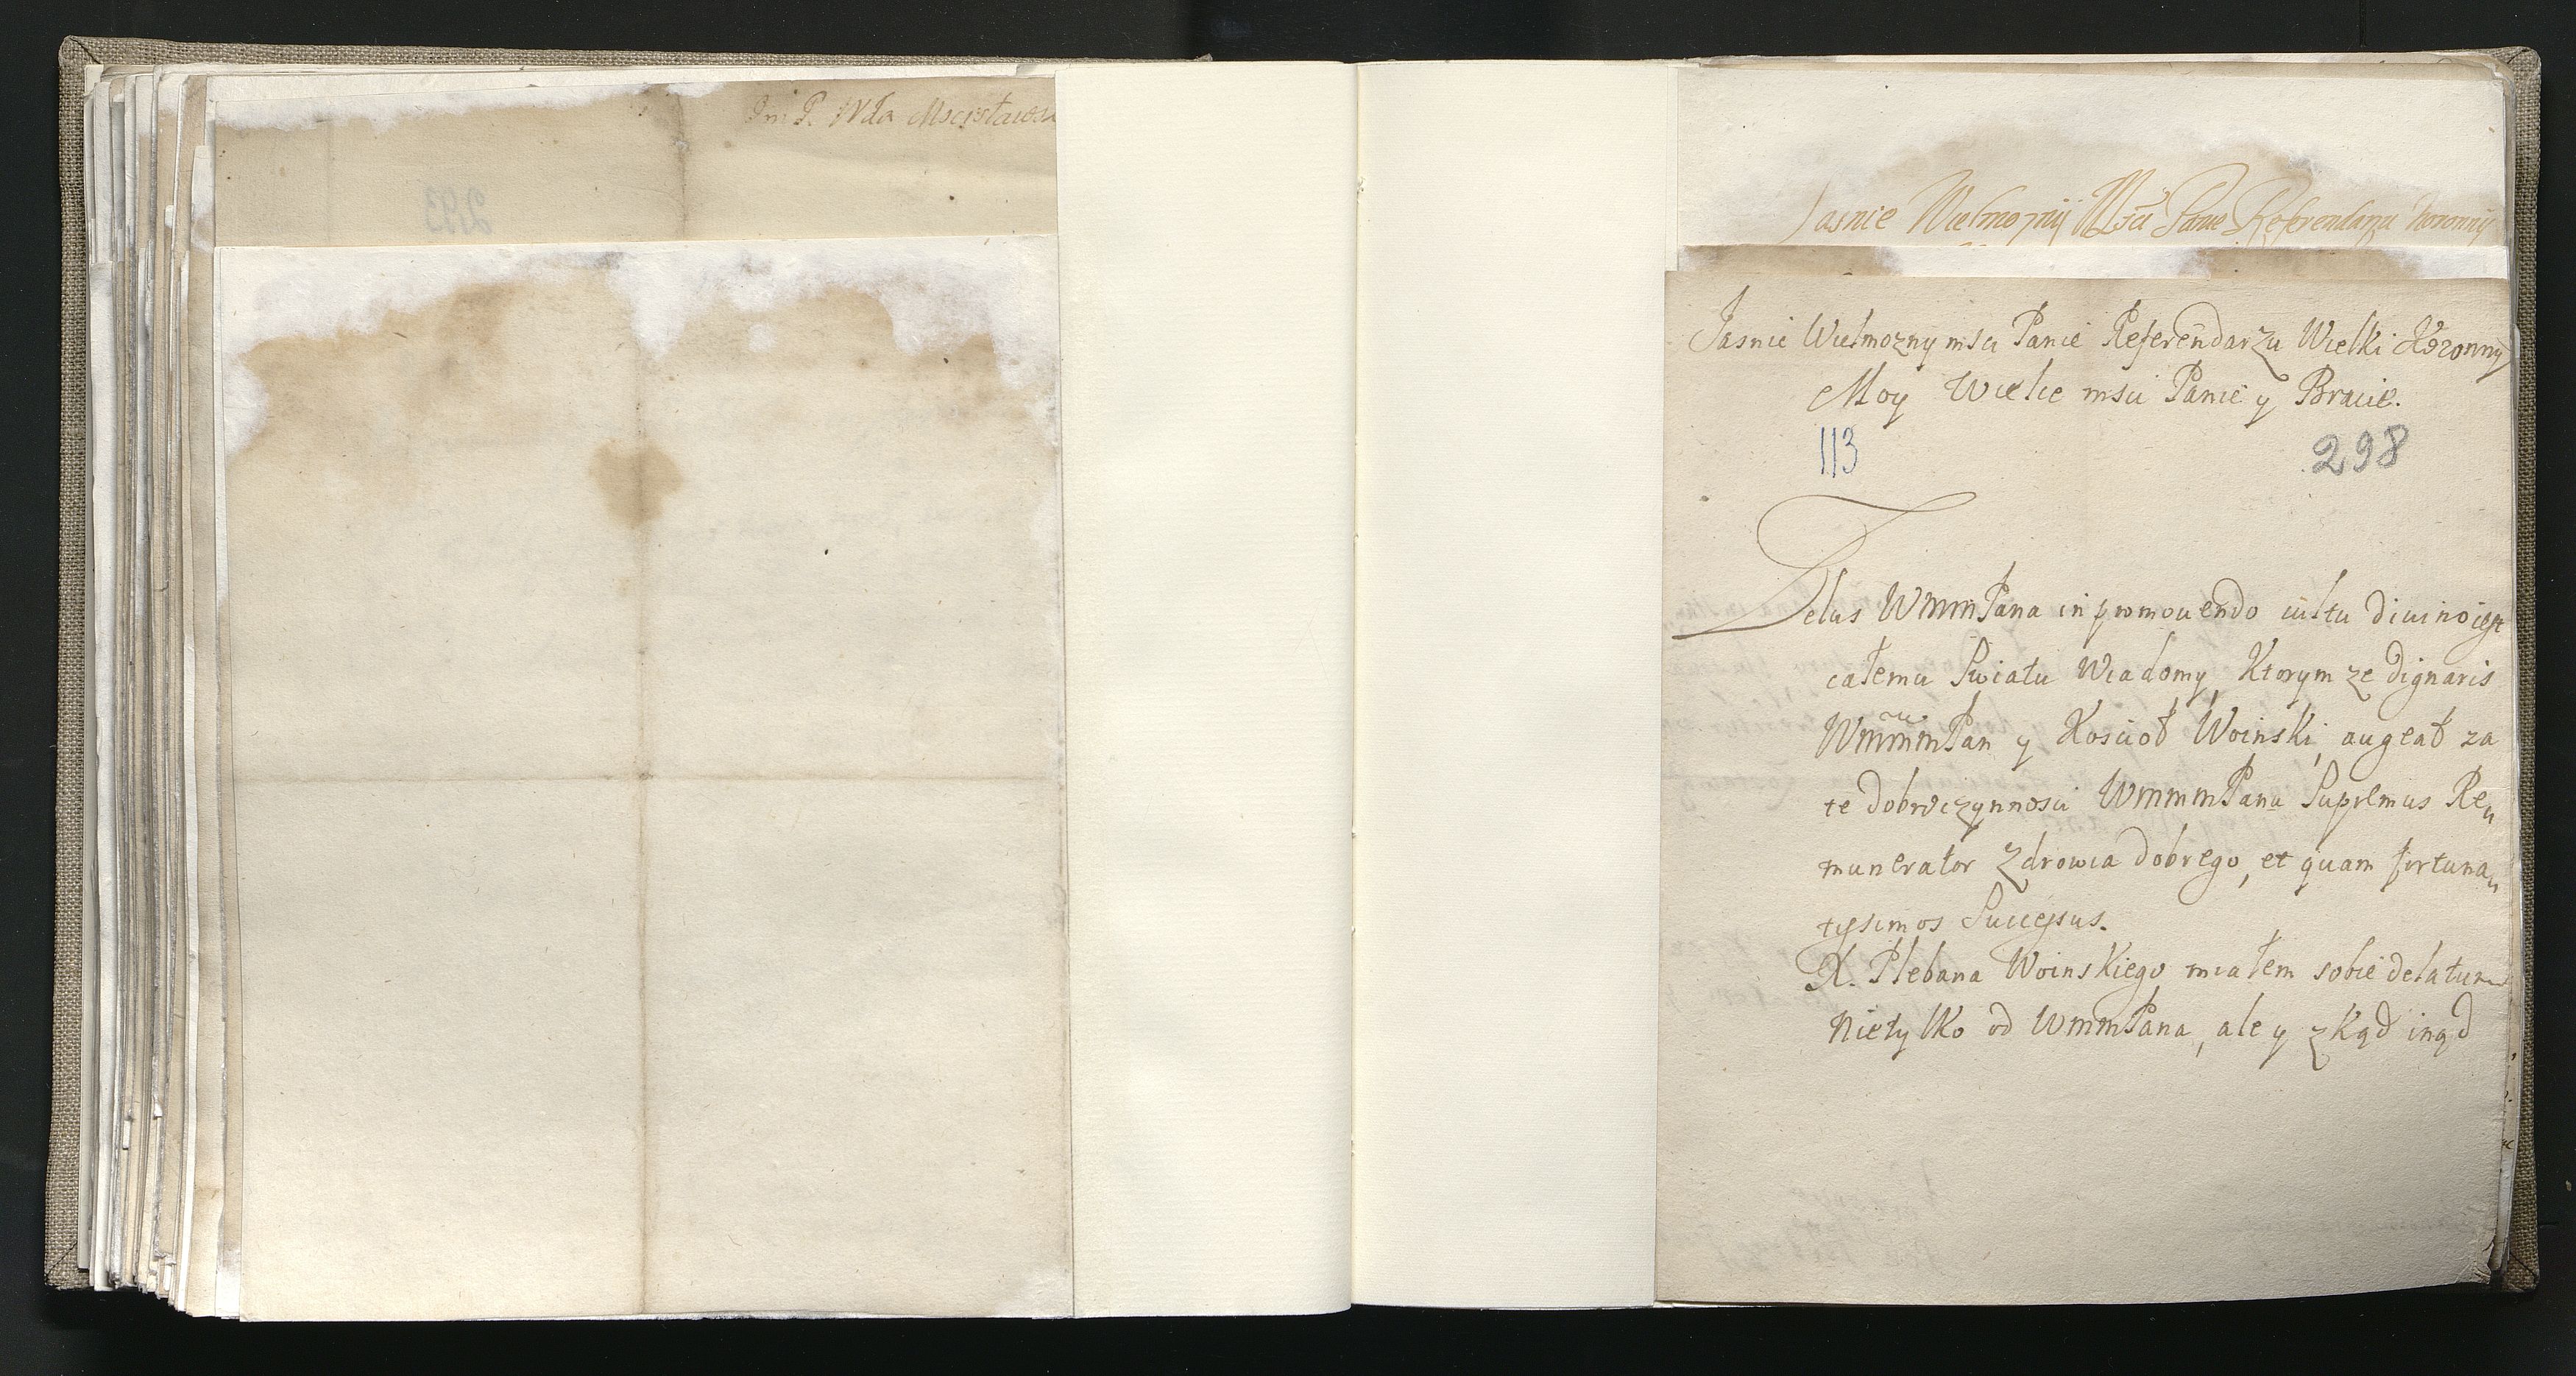 Im P. Wda Mscisławs
293
Jasnie Wielmozny Msci Panie Referendarzu Koronny
Jasnie Wielmozny msci Panie Referendarzu Wielki Koronny
Moy Wielce msci Panie y Bracie.
113
298
Zelus WmmPana in promouendo cultu diuino iest
całemu Swiatu Wiadomy, Ktorym ze dignaris
WmmmPan y Koscioł Woinski, augeat za
te dobroczynnosci WmmmPana Supremus Re„
munerator Zdrowia dobrego, et quam fortuna„
tyssimos Successus.
X. Plebana Woinskiego, miałem sobie delatum
nietylko od WmmPana, ale y zkąd inąd